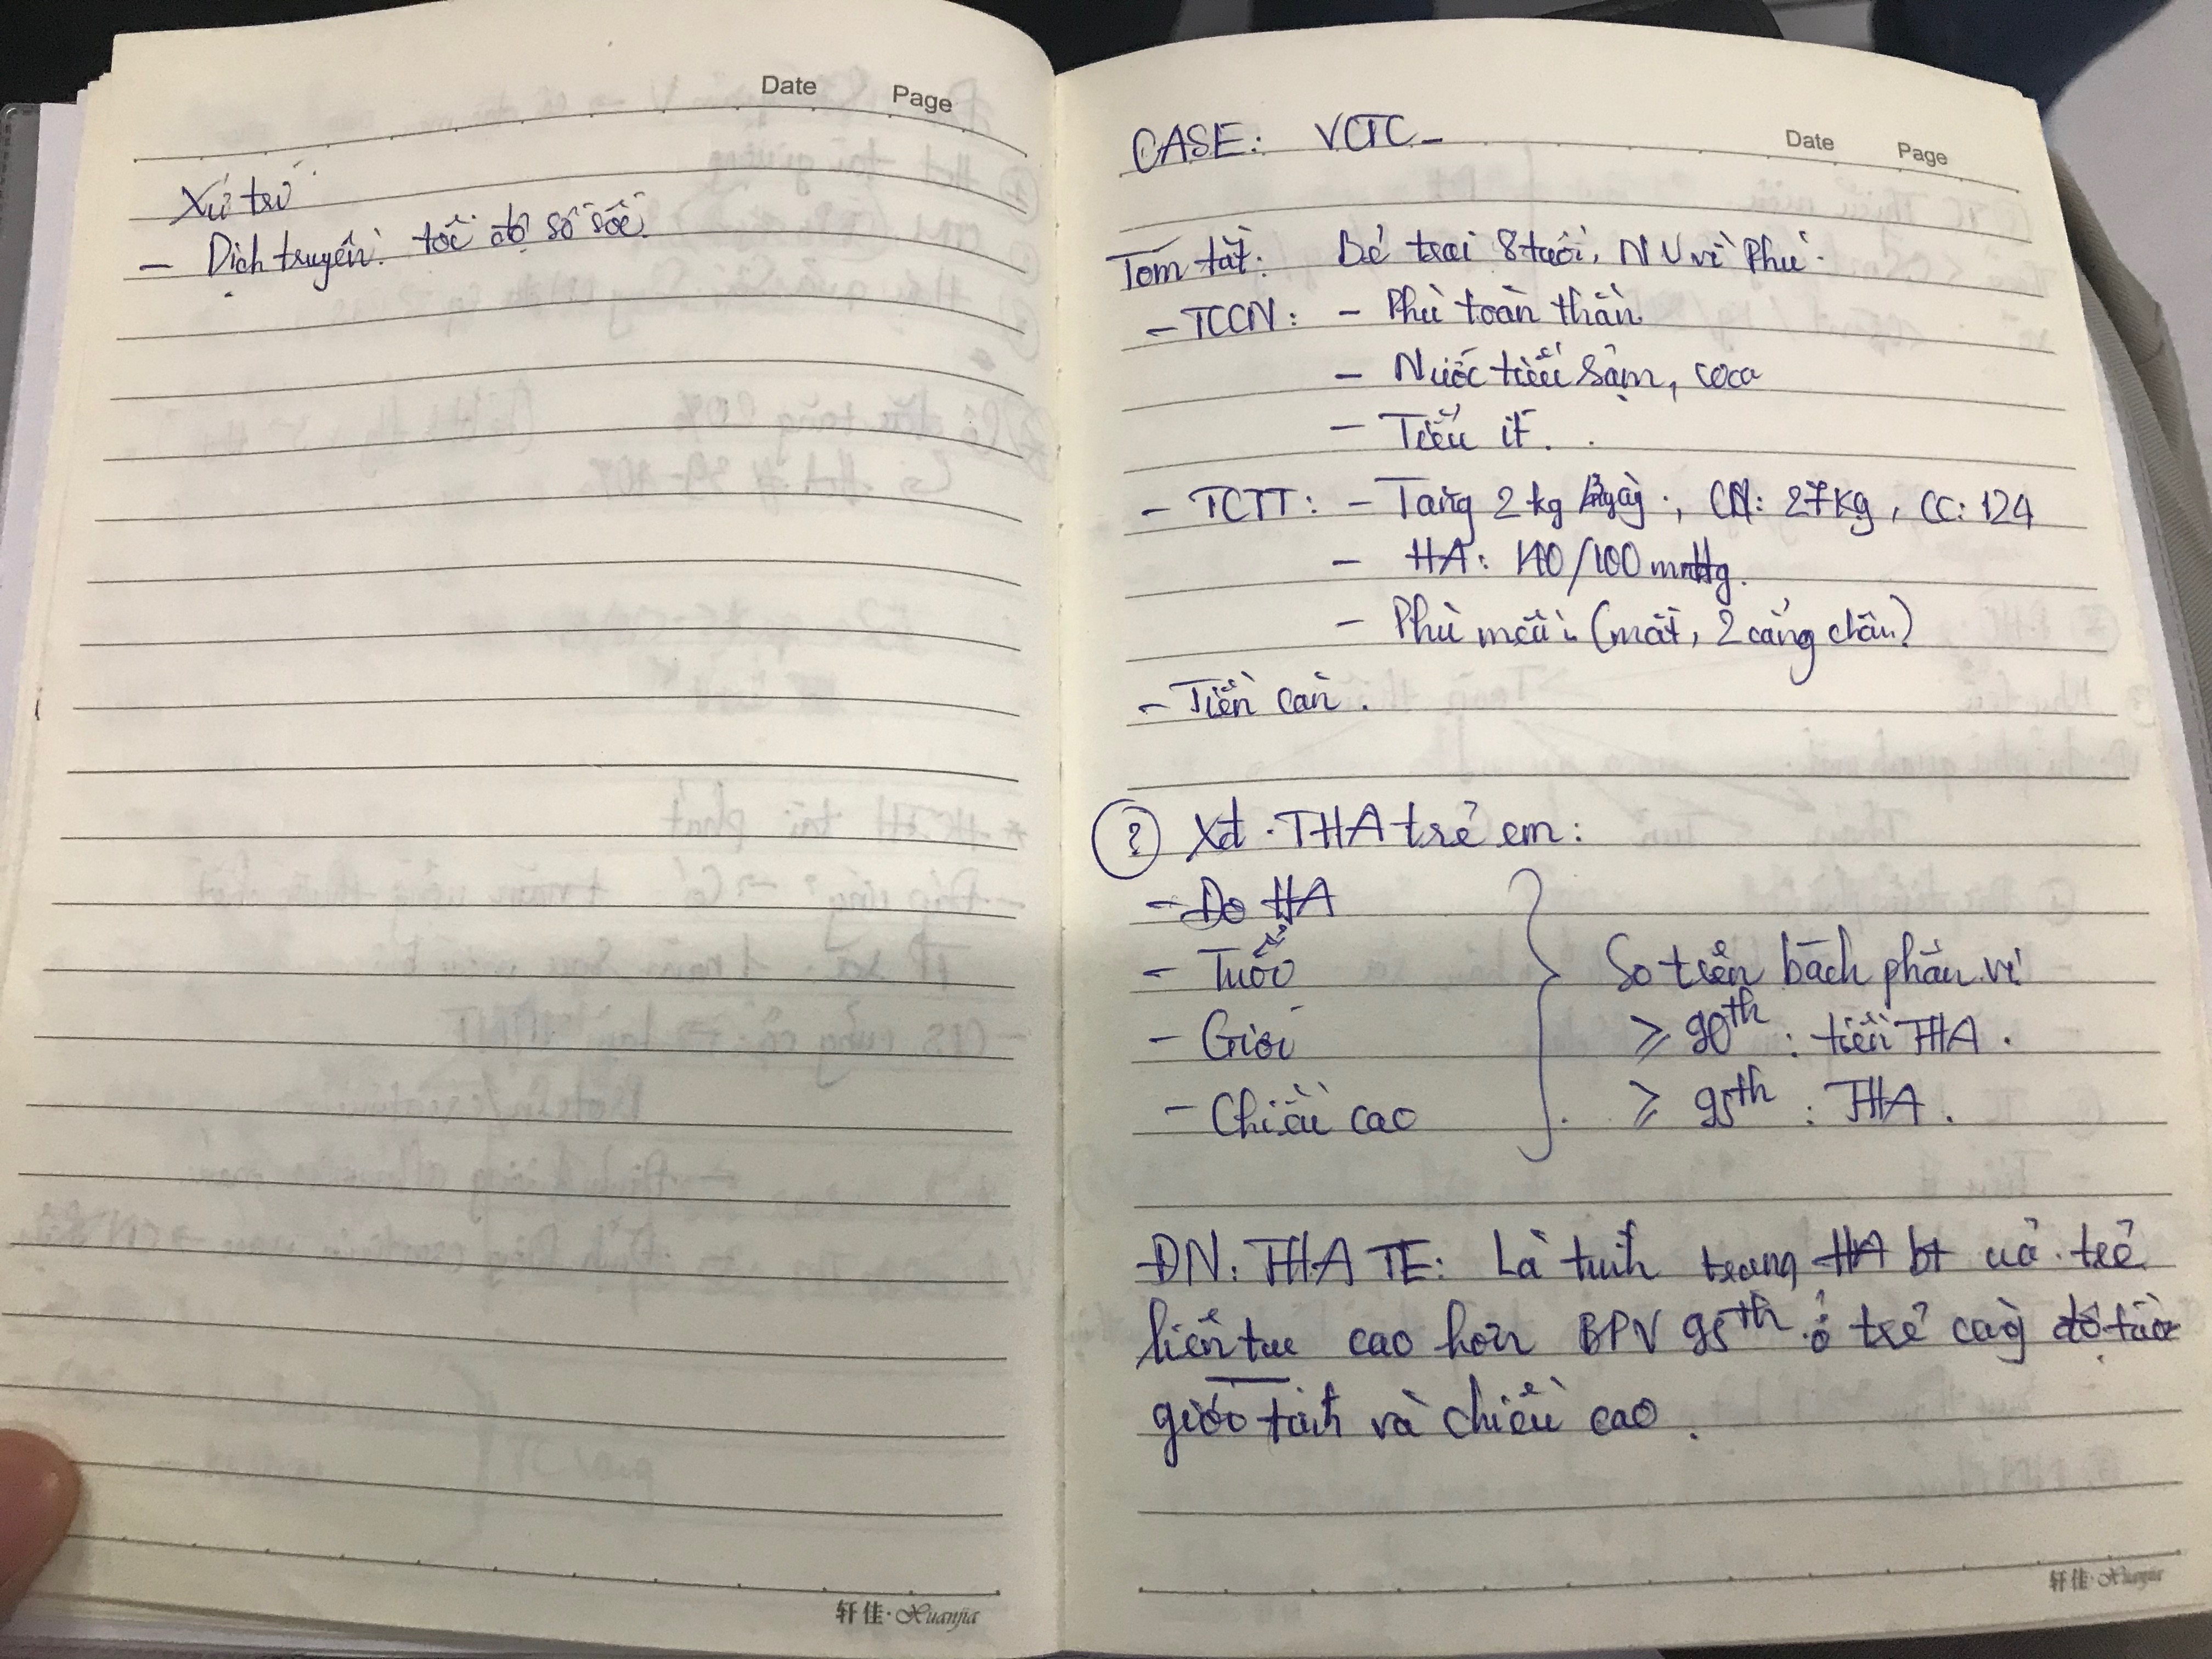 Date Page
Xử trí
- Dịch truyền: tốc độ số sốc
轩佳·Xuanjia
CASE: VCTC -
Date Page
Tóm tắt: Bé trai 8 tuổi, NV vì Phù
- TCCN: - Phù toàn thân
- Nước tiểu sậm, coca
- Tiểu ít.
- TCTT: - Tăng 2 kg /ngày; CN: 27kg, CC: 124
- HA: 140/100 mmHg.
- Phù mềm (mắt, 2 cẳng chân)
- Tiền căn.
? Xđ THA trẻ em:
- Đo HA
- Tuổi
- Giới
- Chiều cao
So trên bách phân vị
≥ 90th : tiền THA.
≥ 95th : THA.
ĐN: THA TE: Là tình trạng HA bt của trẻ
liên tục cao hơn BPV 95th ở trẻ cùng độ tuổi
giới tính và chiều cao.
轩佳·Xuanjia